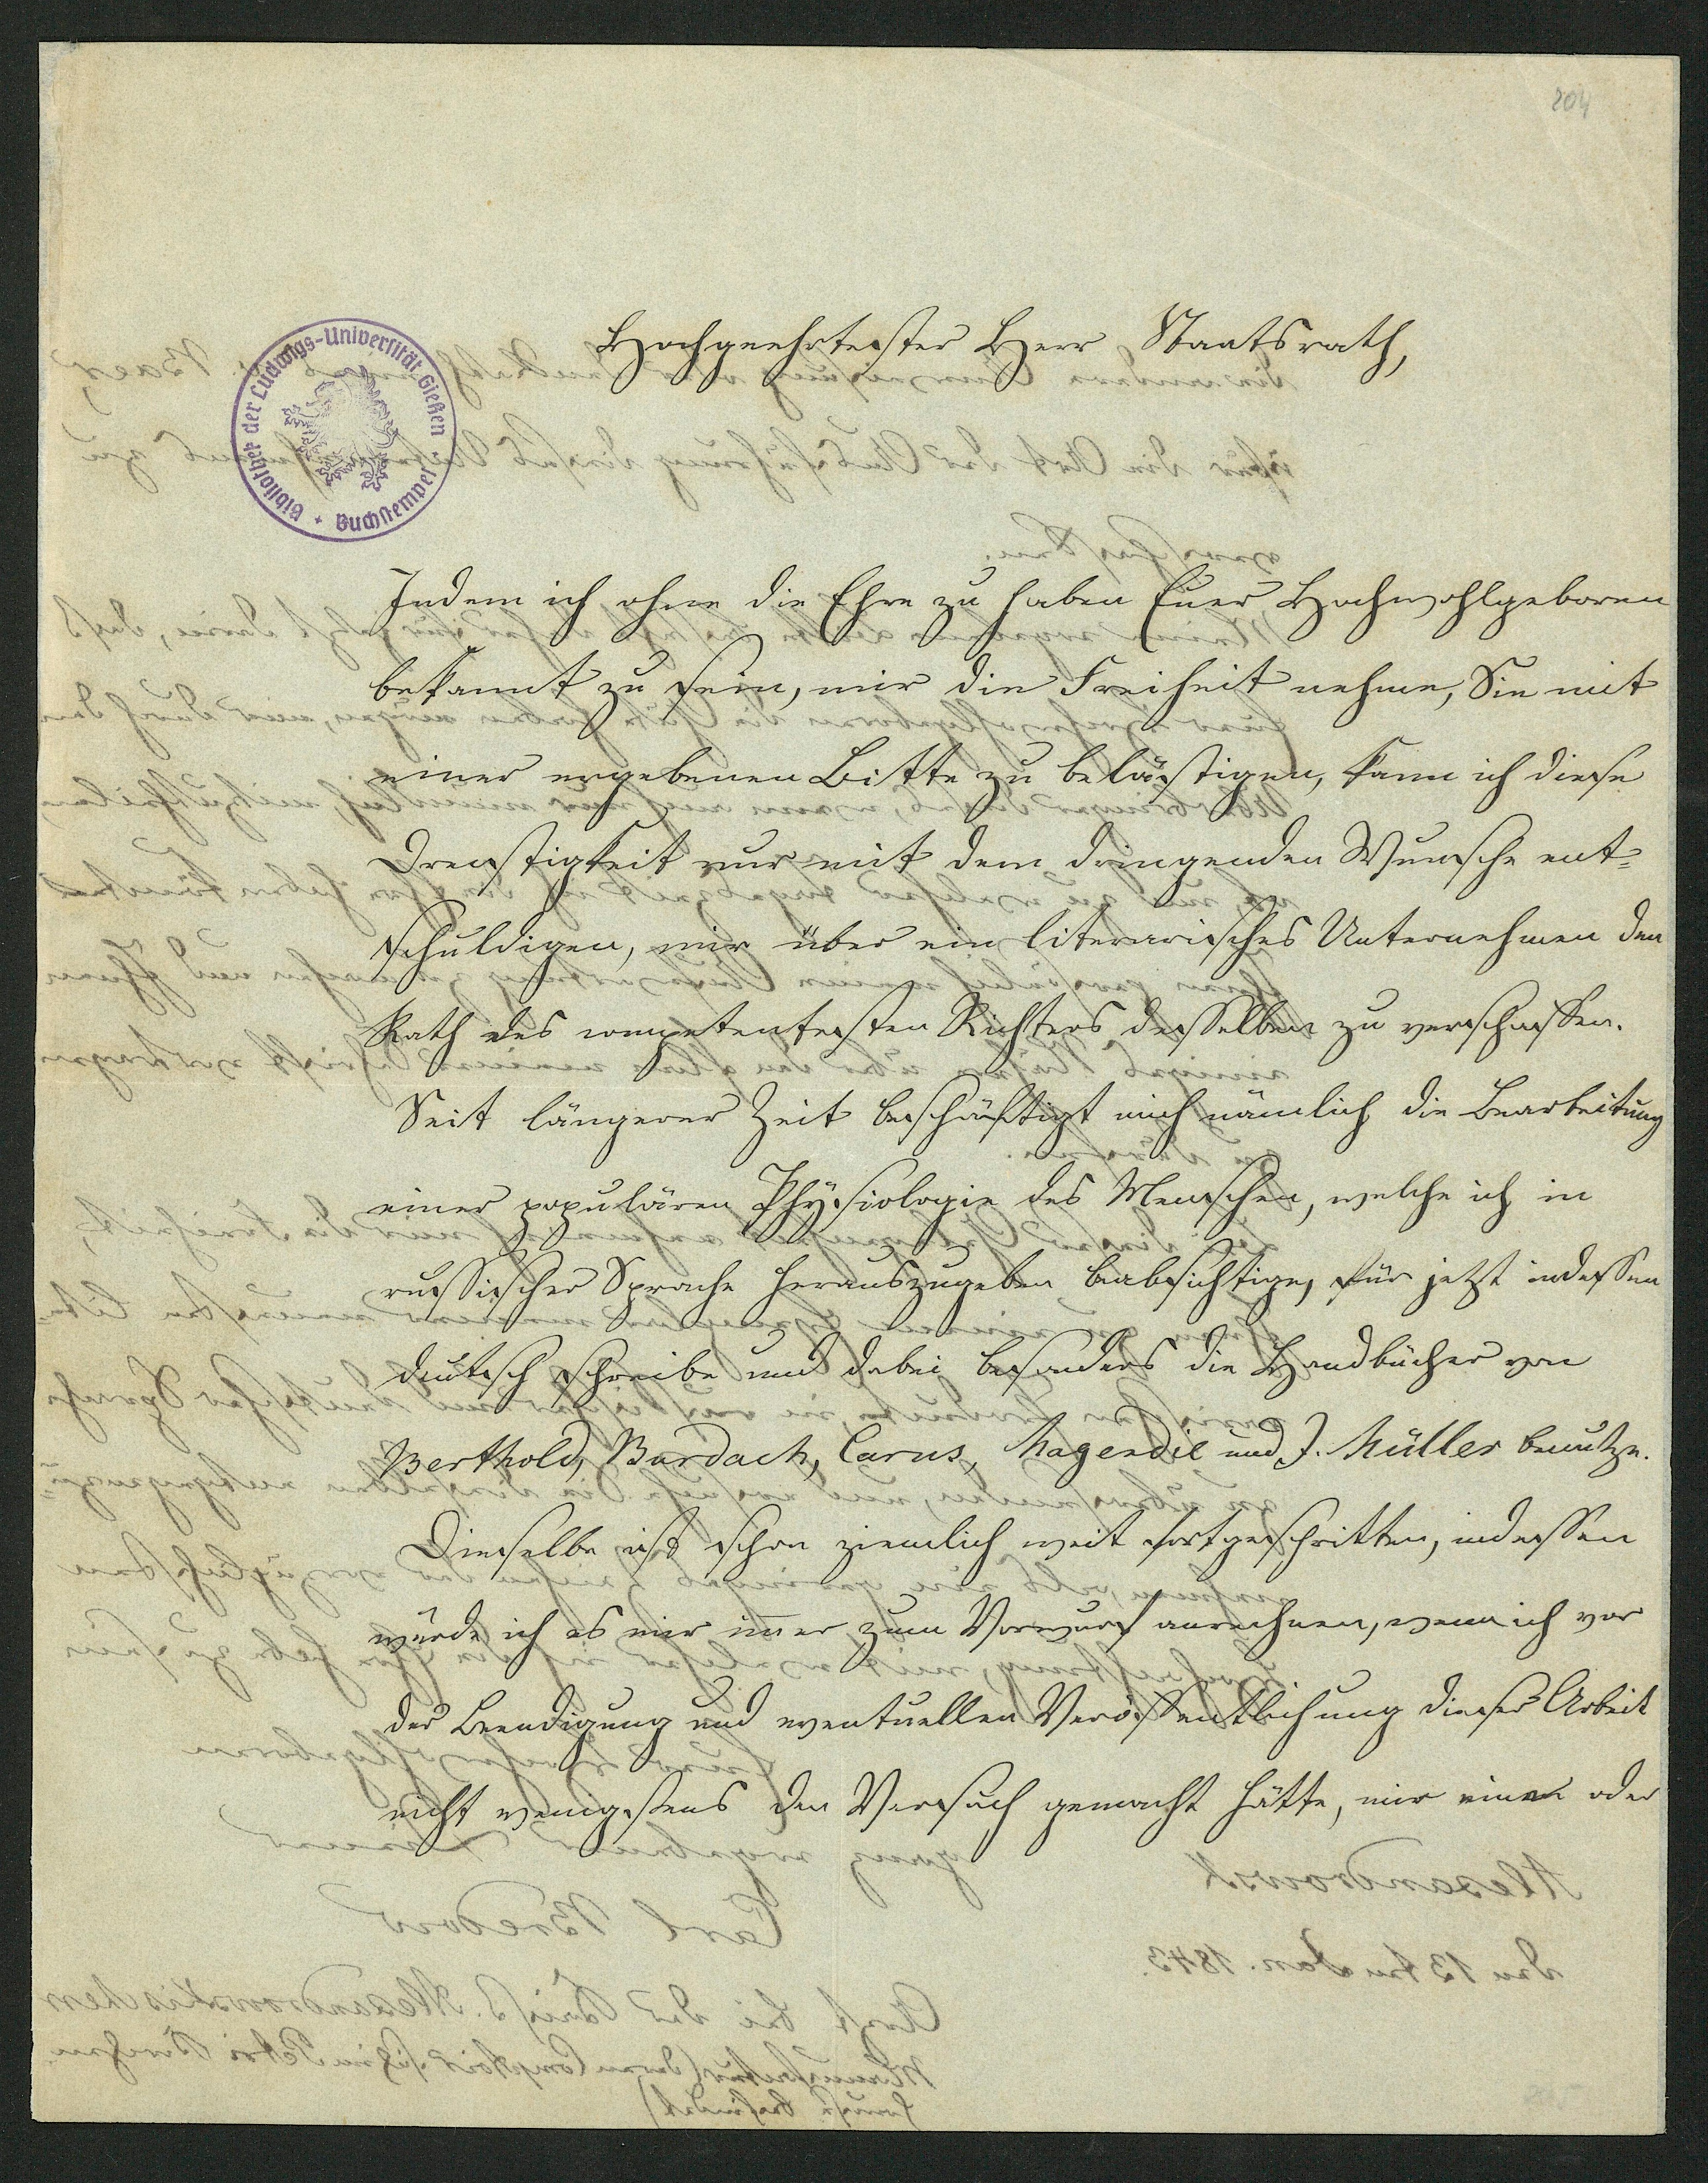 204
Hochgeehrtester Herr Staatsrath,
Bibliothek der Ludwigs-Universität Gießen
Buchstempel
Indem ich ohne die Ehre zu haben Euer Hochwohlgeboren
bekannt zu sein, mir die Freiheit nehme, Sie mit
einer ergebenen Bitte zu belästigen, kann ich diese
Dreistigkeit nur mit dem dringenden Wunsche ent-
schuldigen, mir über ein literarisches Unternehmen den
Rath des competentesten Richters desselben zu verschaffen.
Seit längerer Zeit beschäftigt mich nämlich die Bearbeitung
einer populären Physiologie des Menschen, welche ich in
russischer Sprache herauszugeben beabsichtige, für jetzt indessen
deutsch schreibe und dabei besonders die Handbücher von
Berthold, Burdach, Carus, Magendie und J. Müller benutze.
Dieselbe ist schon ziemlich weit fortgeschritten, indessen
würde ich es mir im̅er zum Vorwurf anrechnen, wenn ich vor
der Beendigung und eventuellen Veröffentlichung dieser Arbeit
nicht wenigstens den Versuch gemacht hätte, mir einen oder